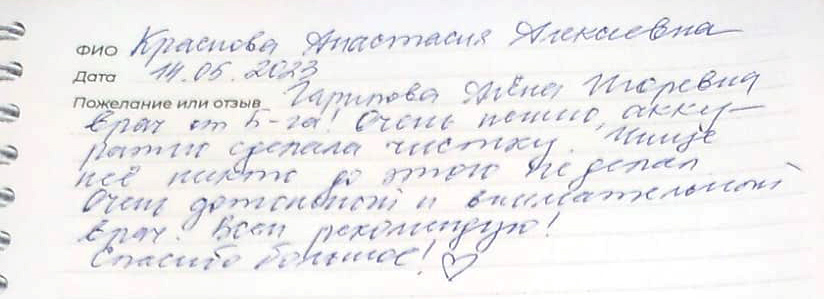 ФИО Краснова Анастасия Алексеевна
Дата 14.05.2023
Пожелание или отзыв Гарипова Алёна Игоревна
врач от Б-га! Очень нежно, акку-
ратно сделала чистку. Чище
неё никто до этого не делал
Очень дотошный и внимательный
врач. Всем рекомендую!
Спасибо большое! ♡